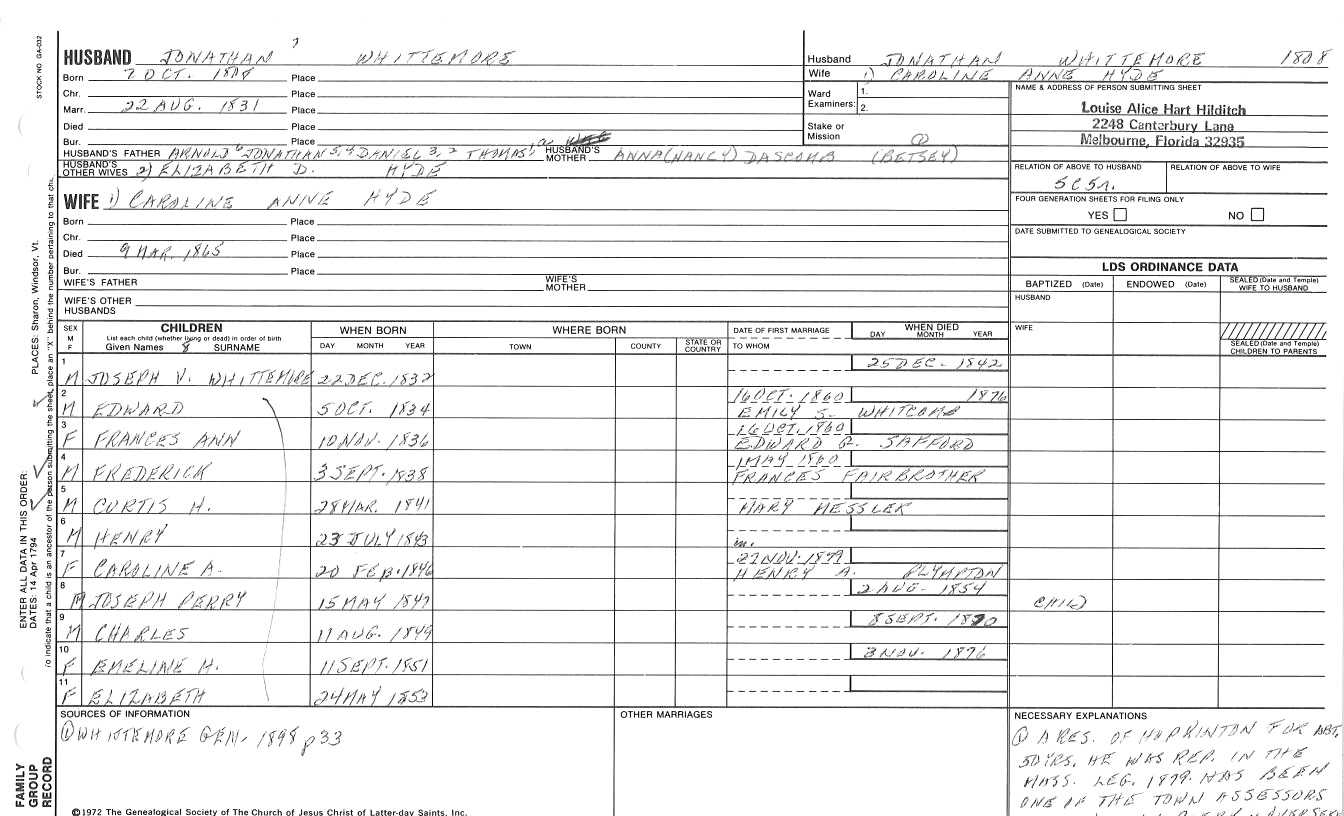 STOCK NO. GA-032
HUSBAND JONATHAN 7 WHITTEMORE
Born 7 OCT. 1808 Place
Chr. Place
Marr. 22 AUG. 1831 Place
Died Place
Bur. Place
HUSBAND'S FATHER ARNOLD 6 JONATHAN 5,4 DANIEL 3,2 THOMAS 1 HUSBAND'S MOTHER ANNA (NANCY) DASCOMB (BETSEY)
HUSBAND'S OTHER WIVES 2) ELIZABETH D. HYDE
WIFE 1) CAROLINE ANNE HYDE
Born Place
Chr. Place
Died 9 MAR. 1865 Place
Bur. Place
WIFE'S FATHER WIFE'S MOTHER
WIFE'S OTHER HUSBANDS
Husband JONATHAN WHITTEMORE 1808
Wife 1) CAROLINE ANNE HYDE
Ward Examiners: 1. 2.
Stake or Mission
NAME & ADDRESS OF PERSON SUBMITTING SHEET
Louise Alice Hart Hilditch
2248 Canterbury Lane
Melbourne, Florida 32935
RELATION OF ABOVE TO HUSBAND RELATION OF ABOVE TO WIFE
5C5R.
FOUR GENERATION SHEETS FOR FILING ONLY
YES NO
DATE SUBMITTED TO GENEALOGICAL SOCIETY
LDS ORDINANCE DATA
BAPTIZED (Date) ENDOWED (Date) SEALED (Date and Temple) WIFE TO HUSBAND
HUSBAND
WIFE
SEALED (Date and Temple) CHILDREN TO PARENTS
SEX M F CHILDREN List each child (whether living or dead) in order of birth Given Names 8 SURNAME
WHEN BORN DAY MONTH YEAR
WHERE BORN TOWN COUNTY STATE OR COUNTRY
DATE OF FIRST MARRIAGE TO WHOM
WHEN DIED DAY MONTH YEAR
1 M JOSEPH V. WHITTEMORE 22 DEC. 1832 25 DEC. 1842
2 M EDWARD 5 OCT. 1834 16 OCT. 1860 EMILY S. WHITCOMB 1876
3 F FRANCES ANN 10 NOV. 1836 16 OCT. 1860 EDWARD R. SAFFORD
4 M FREDERICK 3 SEPT. 1838 1 MAY 1860 FRANCES FAIRBROTHER
5 M CURTIS H. 28 MAR. 1841 MARY HESSLER
6 M HENRY 23 JULY 1843 m.
7 F CAROLINE A. 20 FEB. 1846 27 NOV. 1879 HENRY A. PLYMPTON
8 M JOSEPH PERRY 15 MAY 1847 2 AUG. 1854 CHILD
9 M CHARLES 11 AUG. 1849 8 SEPT. 1870
10 F EMELINE H. 11 SEPT. 1851 3 NOV. 1876
11 F ELIZABETH 24 MAY 1853
SOURCES OF INFORMATION
① WHITTEMORE GEN. 1898 p33
OTHER MARRIAGES
NECESSARY EXPLANATIONS
① A RES. OF HOPKINTON FOR ABT.
50 YRS. HE WAS REP. IN THE
MASS. LEG. 1879. HAS BEEN
ONE OF THE TOWN ASSESSORS
©1972 The Genealogical Society of The Church of Jesus Christ of Latter-day Saints, Inc.
FAMILY GROUP RECORD
ENTER ALL DATA IN THIS ORDER:
DATES: 14 Apr 1794
PLACES: Sharon, Windsor, Vt.
To indicate that a child is an ancestor of the person submitting the sheet, place an "X" behind the number pertaining to that ch